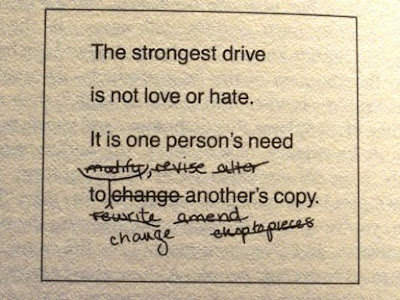 The strongest drive
is not love or hate.
It is one person's need
modify, revise alter
to change another's copy.
rewrite amend
change chop to pieces